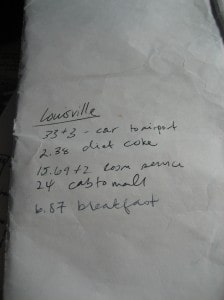 Louisville
33+3 - car to airport
2.38 diet coke
15.69+2 room service
24 cab to mall
6.87 breakfast